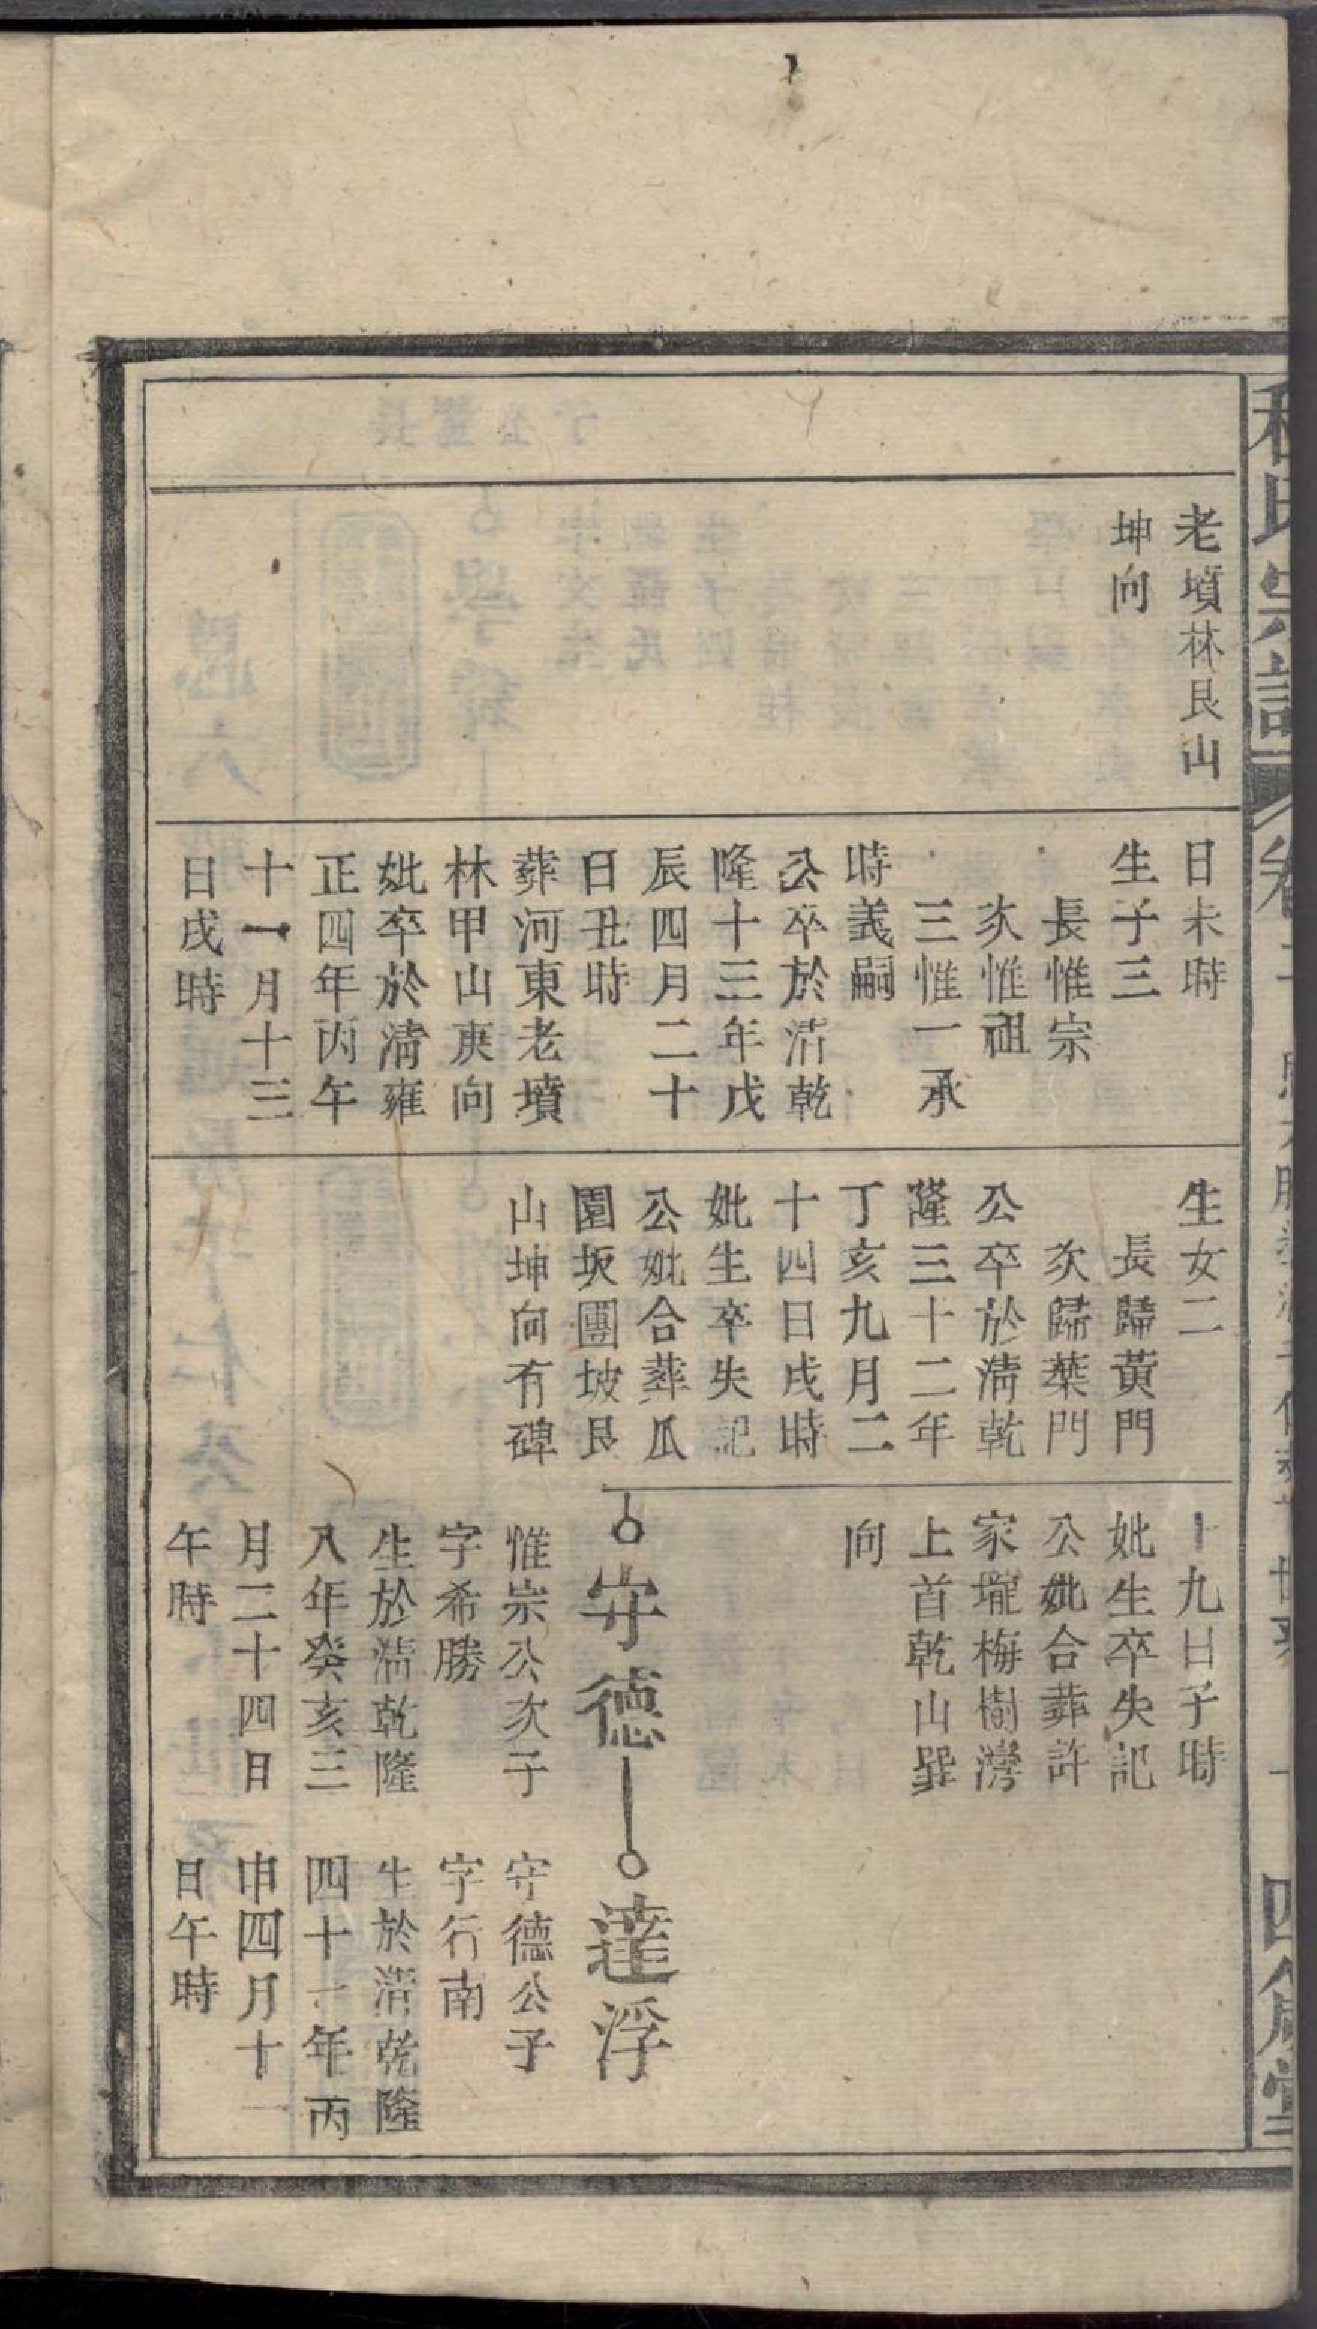 老墳林艮山
坤向
日未時
生子三
長惟宗
次惟祖
三惟一承
時義嗣
公卒於清乾
隆十三年戊
辰四月二十
日丑時
葬河東老墳
林甲山庚向
妣卒於清雍
正四年丙午
十一月十三
日戌時
生女二
長歸黃門
次歸葉門
公卒於清乾
隆三十二年
丁亥九月二
十四日戌時
妣生卒失記
公妣合葬瓜
園坂團坡艮
山坤向有碑
十九日子時
妣生卒失記
公妣合葬許
家壠梅樹灣
上首乾山巽
向
守德
惟宗公次子
字希勝
生於清乾隆
八年癸亥三
月二十四日
午時
達浮
守德公子
字行南
生於清乾隆
四十一年丙
申四月十一
日午時